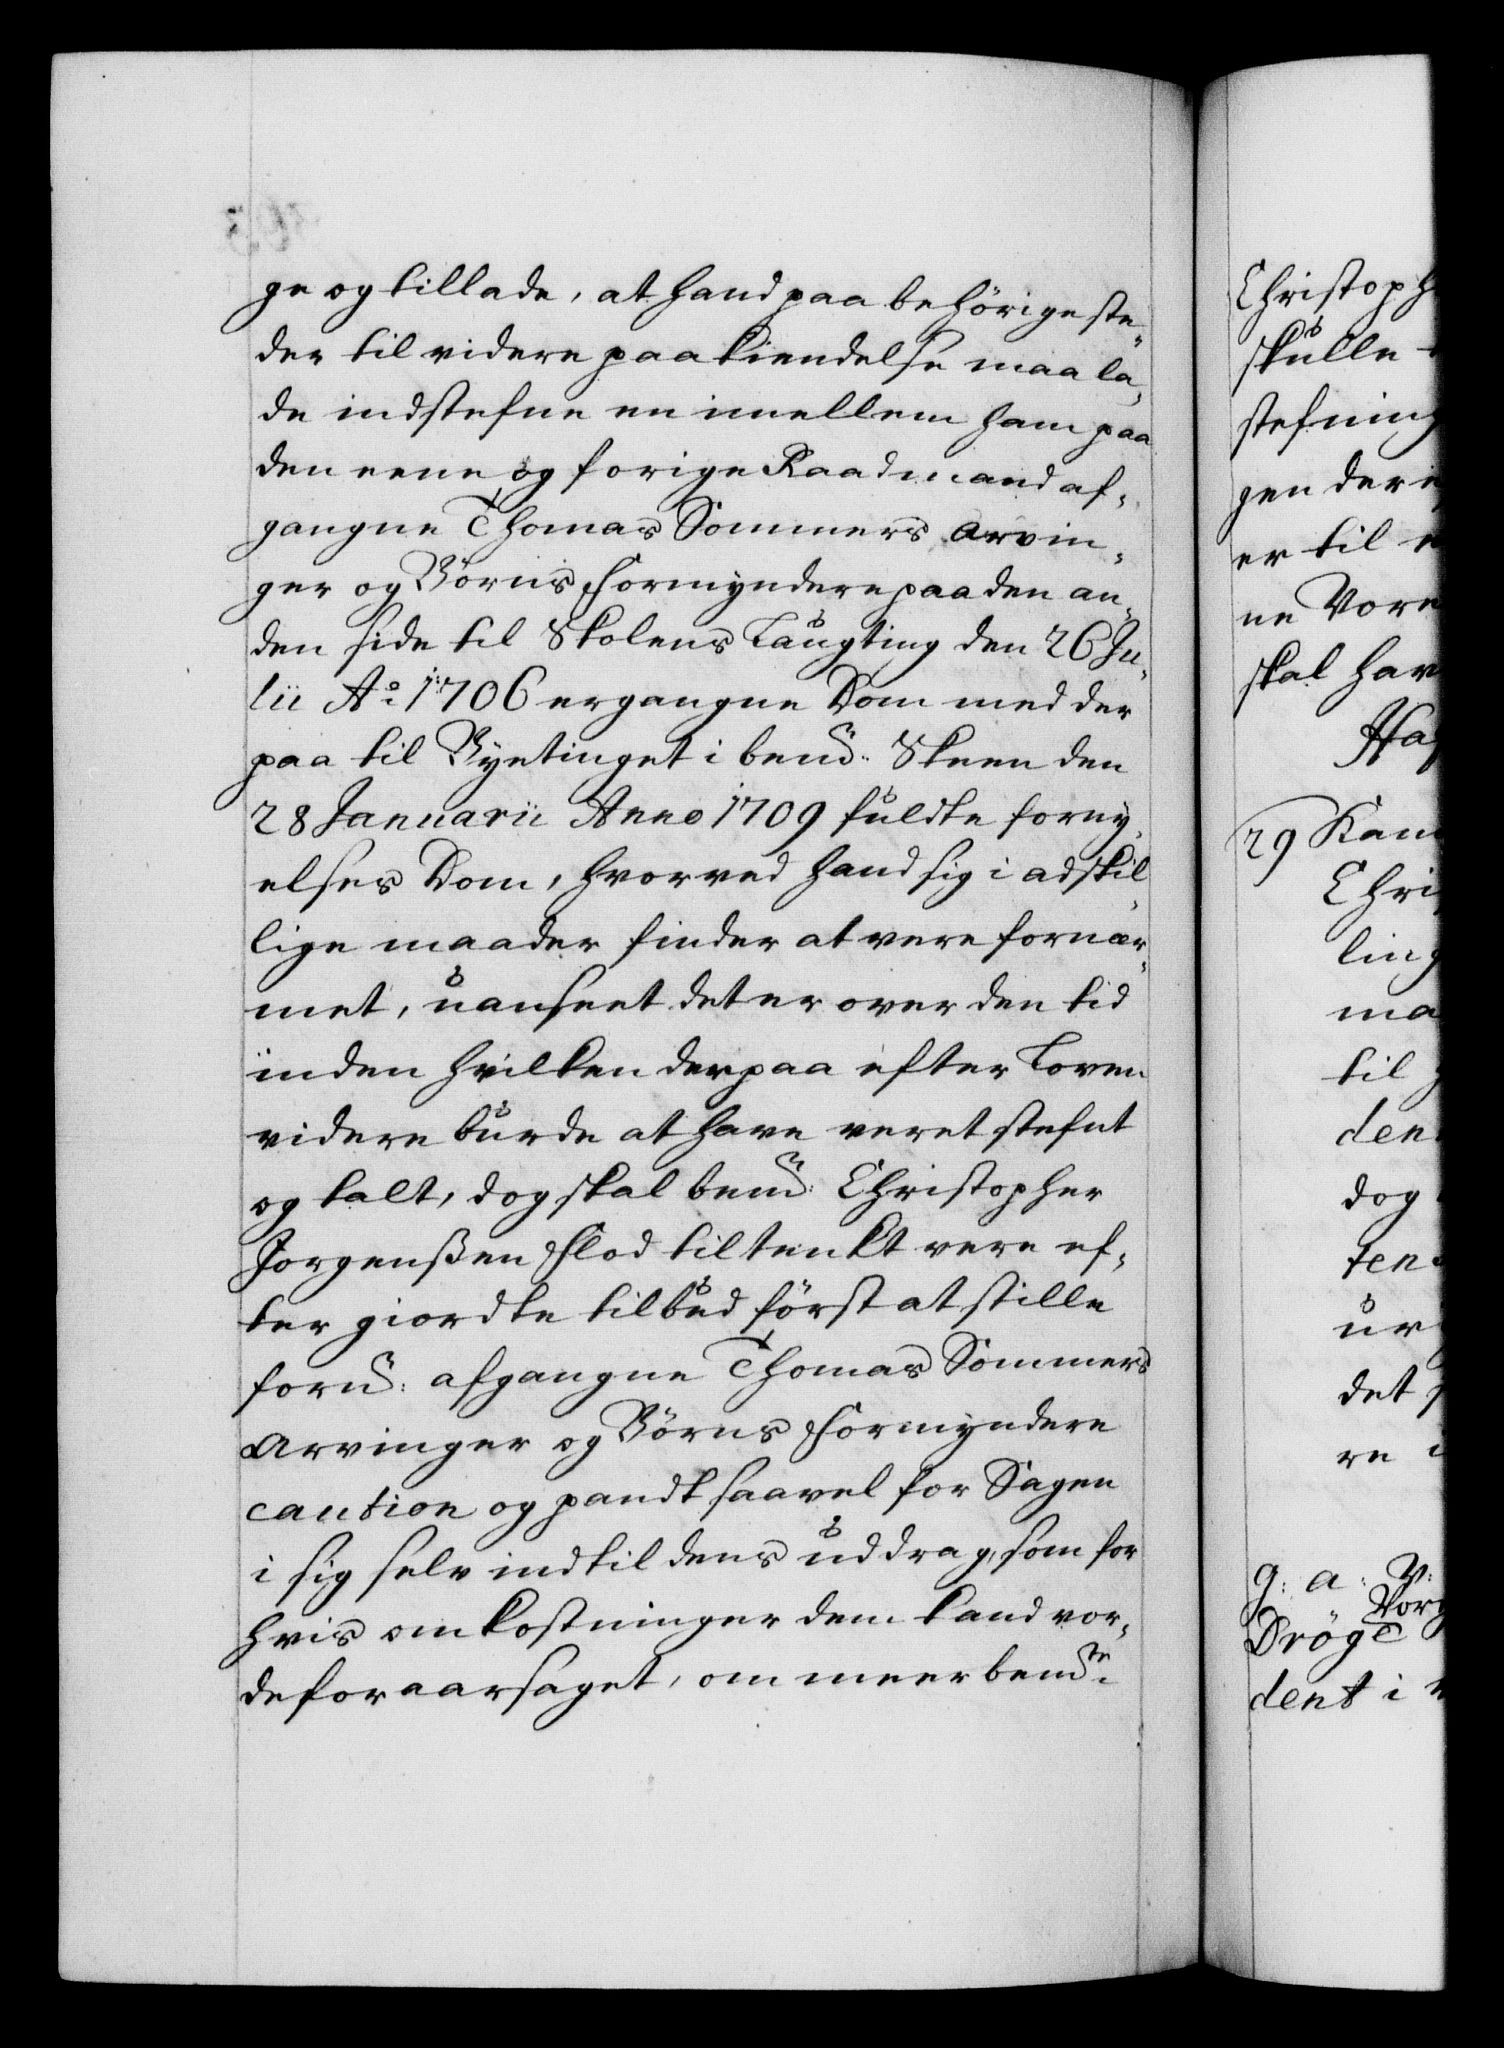 ge og tillade, at hand paa behörige ste-
der til videre paakiendelse maa la-
de indstefne en imellem ham paa
den eene og forige Raadmand af-
gangne Thomas Sommers arvin-
ger og Börns Formyndere paa den an-
den side til Skolens Laugting den 26 Ju-
lii Ao 1706 ergangne Dom med der
paa til Byetinget i bemte Skeen den
28 Januarii Anno 1709 fuldte forny-
elses Dom, hvorved hand sig i adskil-
lige maader finder at vere fornær-
met, uanseet det er over den tid
inden hvilken derpaa efter Loven
videre burde at have veret stefnt
og kalt, dog skal bemte: Christopher
Jorgenßen Flod tiltenkt vere ef-
ter giordte tilbud först at stille
forne: afgangne Thomas Sommers
Arvinger og Börns Formyndere
caution og pandt saavel for Sagen
i sig selv indtil dens uddrag, som for
hvis omkostninger dem kand vor-
de foraarsaget, om meerbemte:
Christoph
skulle
stefning
gen der
er til
ne Vore
skal hav
Haf
29 Kam
Chri
ling
ma
til
den
dog
ten
ur
det
re
G: a: V:
Vorg
Dröge
dent i